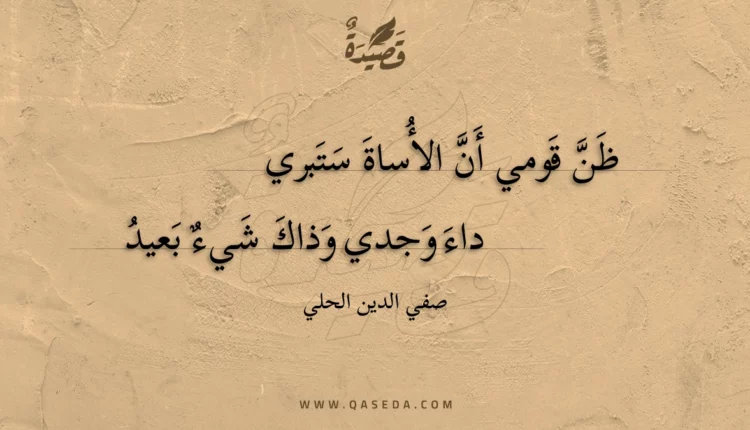 قَصِيدَةٌ
ظَنَّ قَومي أَنَّ الأُساةَ سَتَبري
داءَ وَجدي وَذاكَ شَيءٌ بَعيدُ
صفي الدين الحلي
WWW.QASEDA.COM